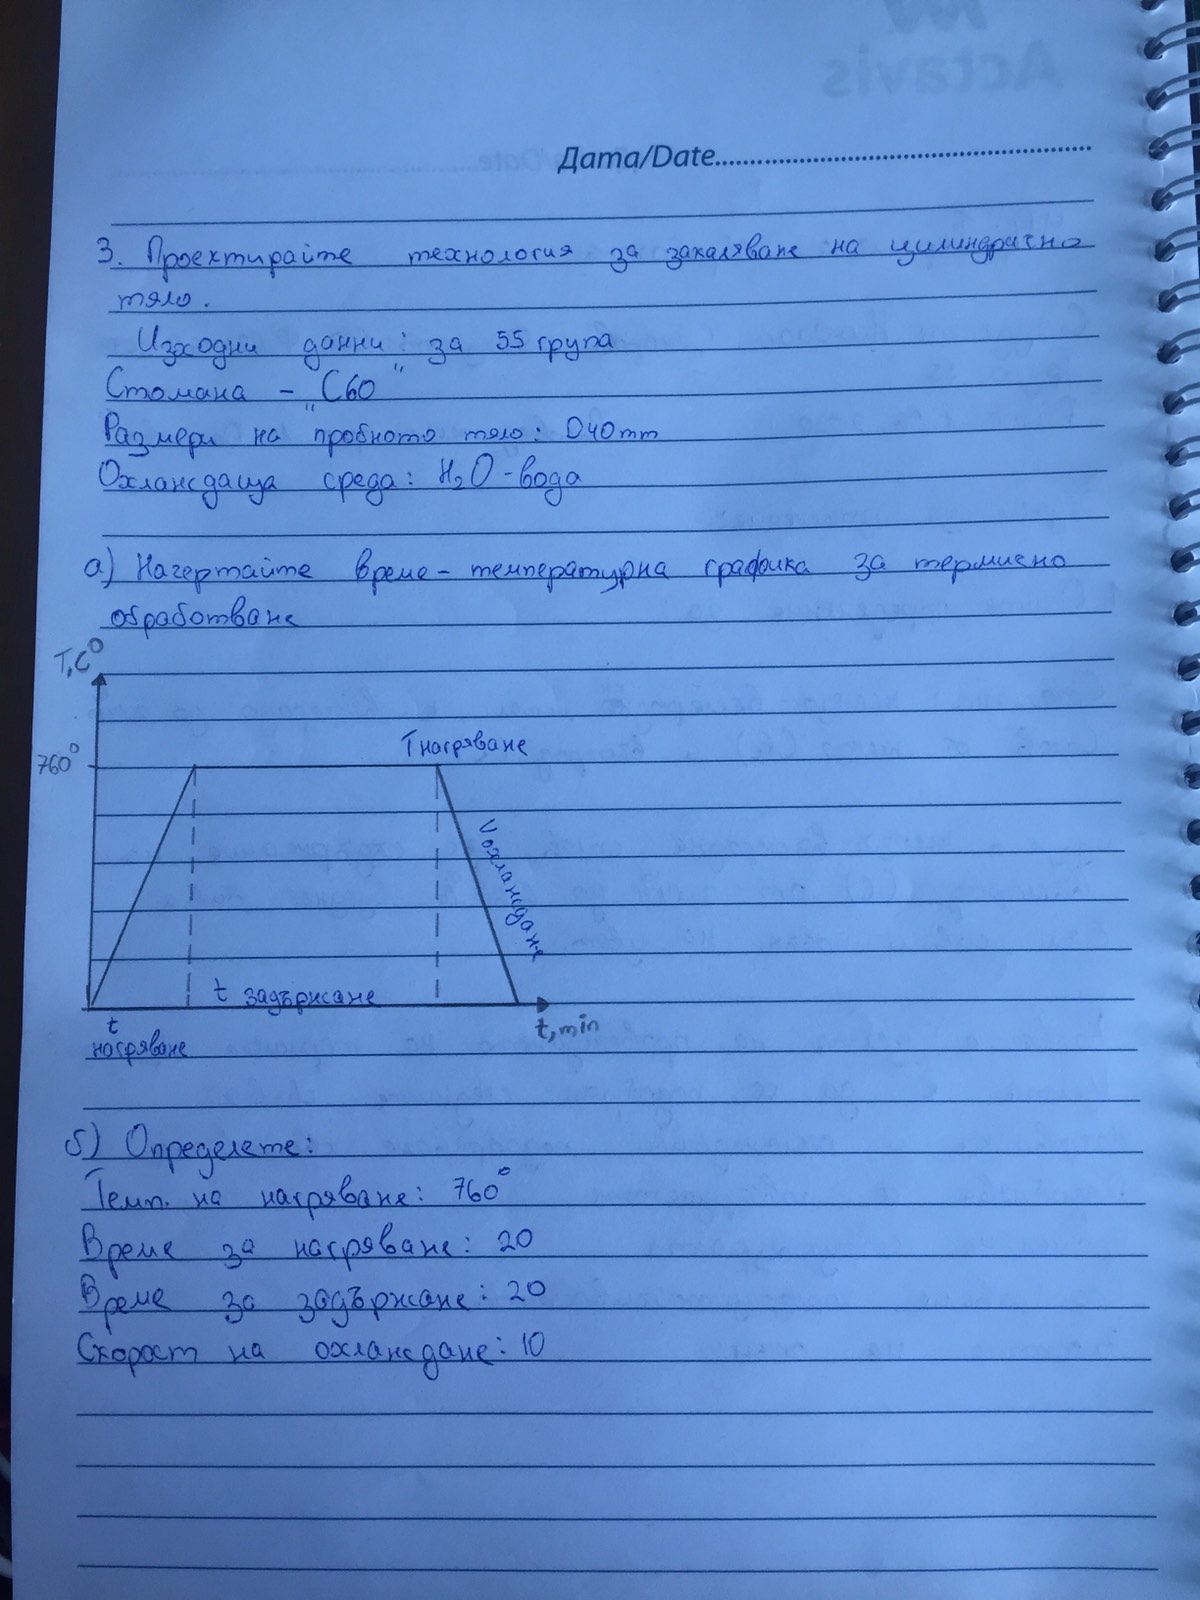 Actavis
Дата/Date
3. Проектирайте технология за закаляване на цилиндрично
тяло.
Изходни данни: за 55 група
Стомана - "C60"
Размери на пробното тяло: D40mm
Охлаждаща среда: H₂O-вода
а) Начертайте време-температурна графика за термично
обработване
T,C°
760°
Tнагряване
Vохлаждане
t задържане
t
нагряване
t,min
б) Определете:
Темп. на нагряване: 760°
Време за нагряване: 20
Време за задържане: 20
Скорост на охлаждане: 10